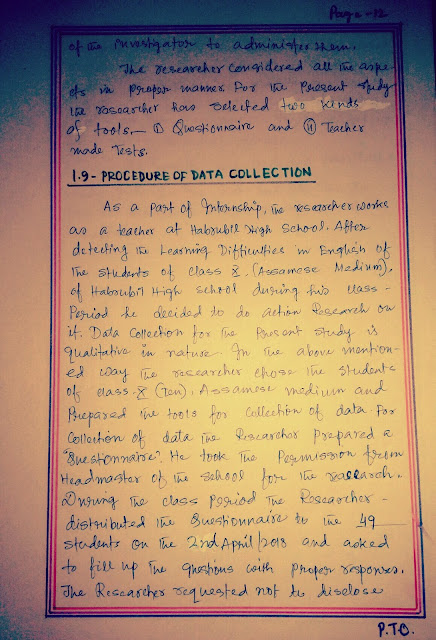 Page-12
of the investigator to administer them.
The researcher considered all the aspe-
cts in proper manner. For the Present study
the researcher has selected two kinds
of tools.— (i) Questionnaire and (ii) Teacher
made Tests.
1.9 - PROCEDURE OF DATA COLLECTION
As a part of Internship, the researcher works
as a teacher at Habrubil High School. After
detecting the Learning Difficulties in English of
the students of class X. (Assamese Medium),
of Habrubil High School during his class -
Period he decided to do action Research on
it. Data Collection for the Present study is
qualitative in nature. In the above mention-
ed way the researcher chose the students
of class-X (Ten), Assamese medium and
Prepared the tools for Collection of data. For
Collection of data the Researcher Prepared a
"Questionnaire". He took the Permission from
Headmaster of the School for the research.
During the class period the Researcher -
distributed the Questionnaire to the 49
students on the 2nd April/2018 and asked
to fill up the questions with proper responses.
The Researcher requested not to disclose
P.T.O.